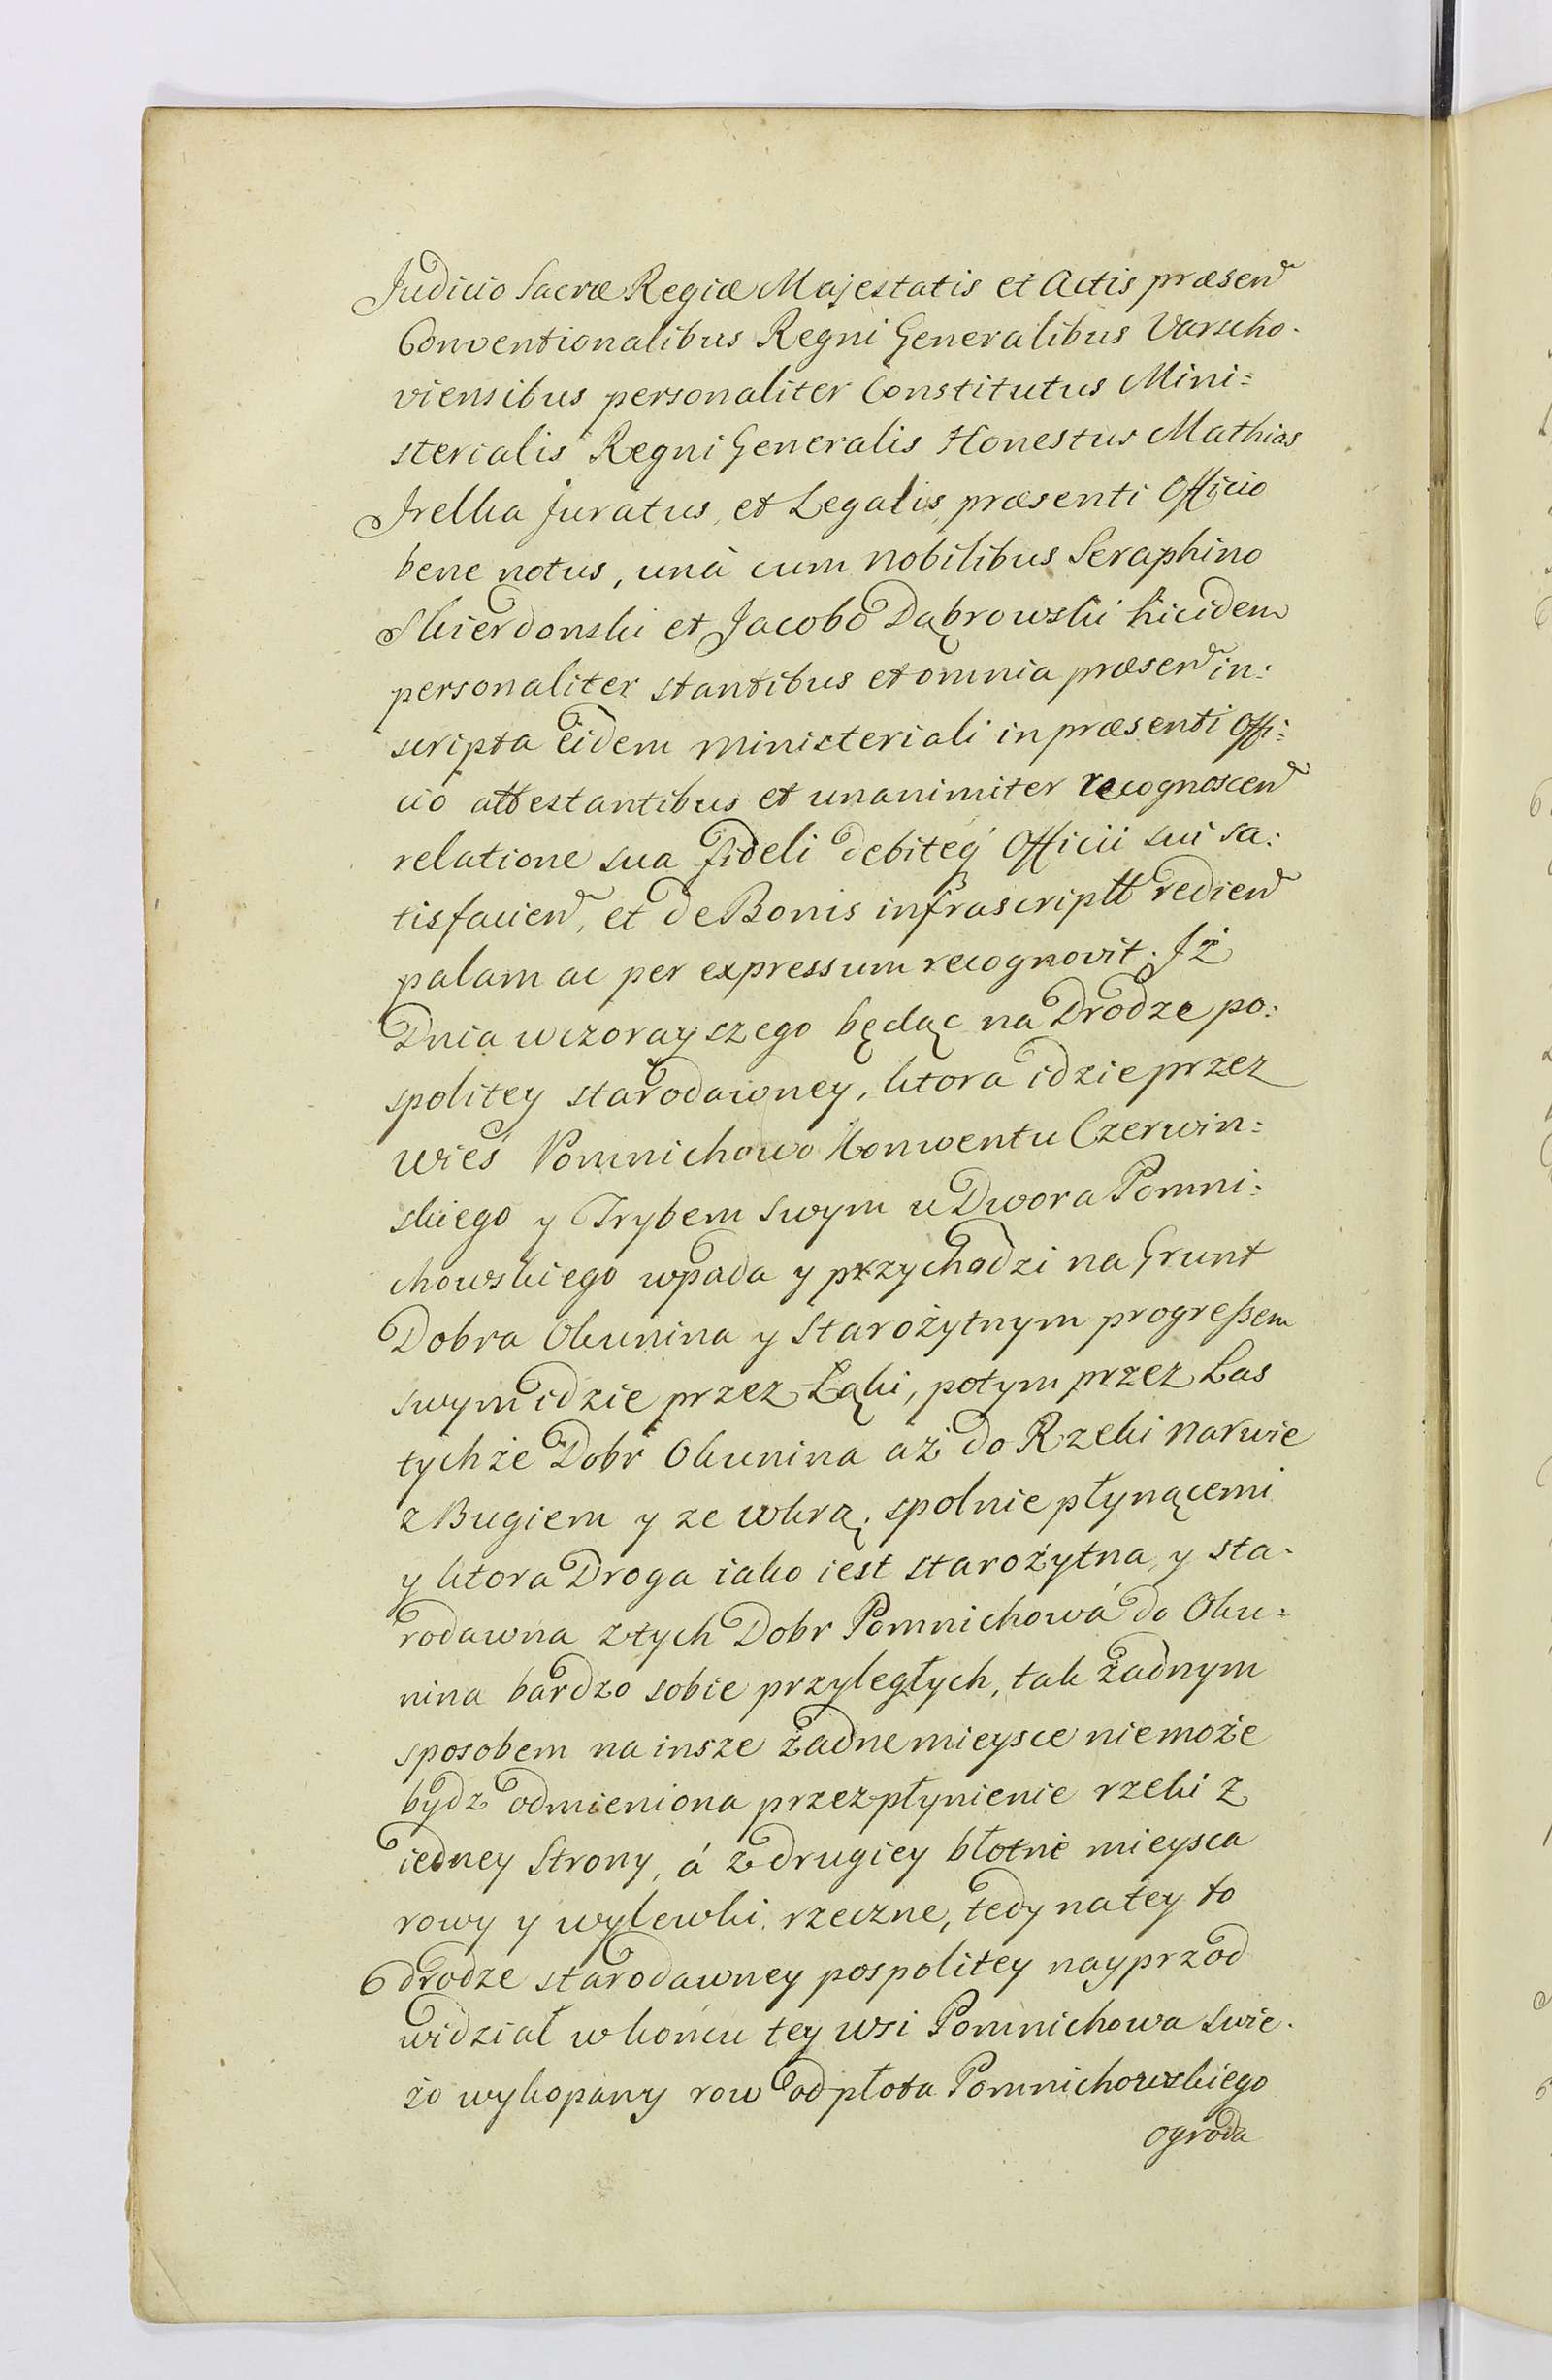 Judicio Sacræ Regiæ Majestatis et Actis præsen
Conventionalibus Regni Generalibus Varscho-
viensibus personaliter Constitutus Mini=
sterialis Regni Generalis Honestus Mathias
Juratus, et Legalis, præsenti Officio
bene notus, unà cum nobilibus Seraphino
Skierdonski et Jacobo Dąbrowski hicidem
personaliter stantibus et omnia præsen in:
scripta eidem ministeriali in præsenti Offi:
cio attestantibus et unanimiter recognoscen
relatione sua fideli debiteq́ Officii sui sa:
tisfacien, et de Bonis infrascriptt redien
palam ac per expressum recognovit. Jż
Dnia wczorayszego będąc na Drodze po:
spolitey starodawney, ktora idzie przez
wieś Pomnichowo Konwentu Czerwin=
skiego y Trybem swym u Dwora Pomni=
chowskiego wpada y przychodzi na Grunt
Dobra Okunina y Starożytnym progreſsem
swym idzie przez Łąki, potym przez Las
tychże Dobr Okunina aż do Rzeki Narwie
z Bugiem y ze wkrą, spolnie płynącemi
y ktora Droga iako iest starożytna, y sta-
rodawna z tych Dobr Pomnichowá do Oku=
nina bardzo sobie przyległych, tak żadnym
sposobem na insze żadne mieysce nie może
bydz odmieniona przez płynienie rzeki z
iedney Strony, á z drugiey błotne mieysca
rowy y wylewki rzeczne, tedy na tey to
drodze starodawney pospolitey nayprzod
widział w końcu tey wsi Pomnichowa swie-
żo wykopany row od płota Pomnichowskiego
ogroda